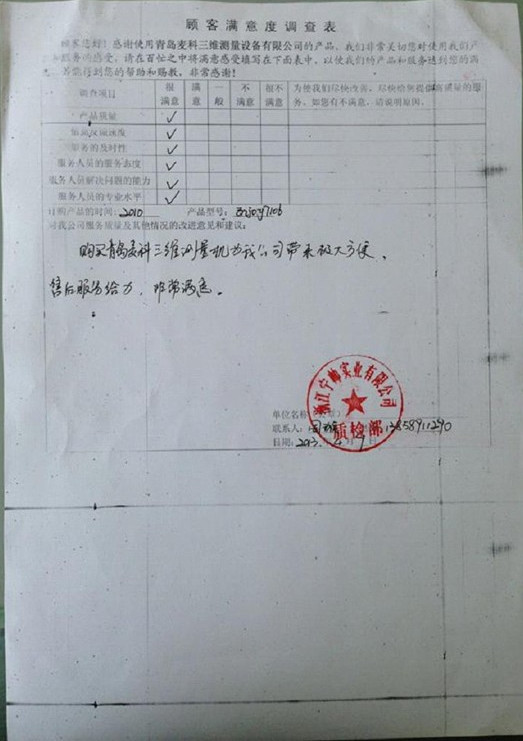 顾客满意度调查表
顾客您好！感谢使用青岛麦科三维测量设备有限公司的产品，我们非常关切您对使用我们产
服务的感受，请在百忙之中将满意感受填写在下面表中，以使我们的产品和服务达到您的满
能得到您的帮助和赐教，非常感谢！
调查项目 很满意 满意 一般 不满意 很不满意 为使我们尽快改善，尽快给何提供高质量的服务，如您有不满意，请说明原因。
产品质量 ✓
信息反馈速度 ✓
服务的及时性 ✓
服务人员的服务态度 ✓
服务人员解决问题的能力 ✓
服务人员的专业水平 ✓
订购产品的时间：2010 产品型号：
对我公司服务质量及其他情况的改进意见和建议：
购买青岛麦科三维测量机为我公司带来极大方便，
售后服务给力，非常满意。
浙江宁帅实业有限公司
质检部
单位名称
联系人： 13858911290
日期：2013. 月9日